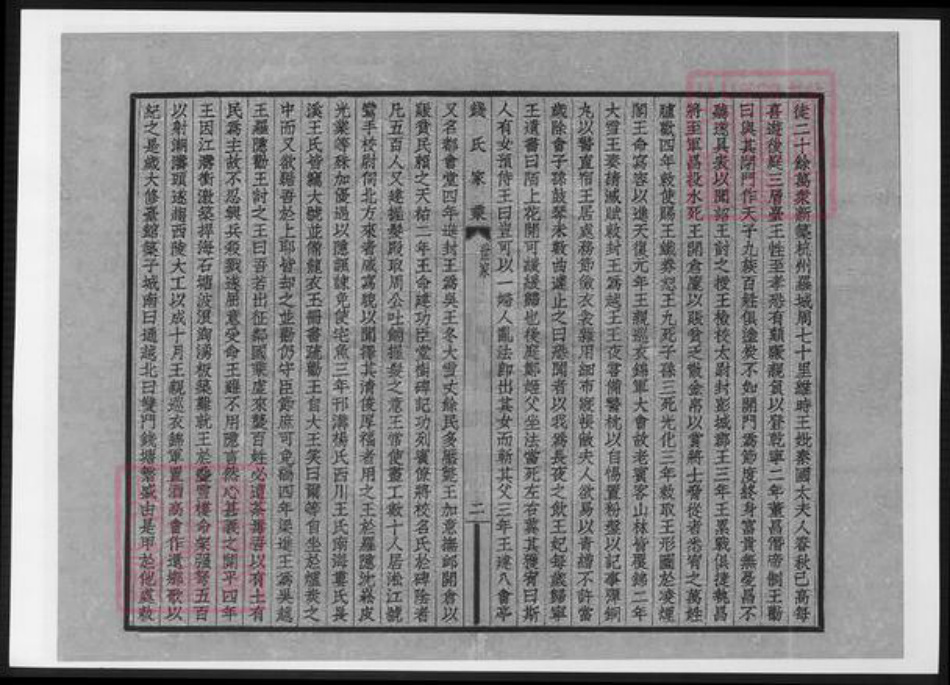 徒二十餘萬衆新築杭州羅城周七十里維時王妣秦國太夫人春秋已高每
喜遊後庭三層臺王性至孝雖有顛躓親負以登乾寧二年董昌僭帝制王勸
曰與其閉門作天子九族百姓俱塗炭不如開門爲節度終身富貴無憂昌不
聽遂具表以聞詔王討之授王檢校太尉封彭城郡王三年王累戰俱捷執昌
將至軍昌投水死王開倉廩以賑貧乏散金帛以賞將士脅從者悉宥之萬姓
臚歡四年敕使賜王鐵券恕王九死子孫三死光化三年敕取王形圖於凌煙
閣王命寫容以進天復元年王親巡衣錦軍大會故老賓客山林皆覆錦二年
大雪王奏請減賦敕封王爲越王王夜嘗備警枕以自惕置粉盤以記事彈銅
丸以警直宿王居處務節儉衣衾雜用細布寢帳敝夫人欲易以青繒不許嘗
歲除會子孫鼓琴未數曲遽止之曰恐聞者以我爲長夜之飲王妃每歲歸寧
王遺書曰陌上花開可緩緩歸也後庭鄭姬父坐法當死左右冀其獲宥曰斯
人有女預侍王曰豈可以一婦人亂法卽出其女而斬其父三年王建八會亭
錢氏家乘 世家 二
又名都會堂四年進封王爲吳王冬大雪丈餘民多斃王加意撫卹開倉以
賑貧民賴之天祐二年王命建功臣堂樹碑記功列賓僚將校名氏於碑陰者
凡五百人又建握髮殿取周公吐餔握髮之意王常使畫工數十人居淞江號
鸞手校尉伺北方來者咸寫貌以聞擇其清俊厚福者用之王於羅隱沈崧皮
光業等殊加優遇以隱諷諫免使宅魚三年邗溝楊氏西川王氏南海劉氏長
溪王氏皆竊大號並備龍衣玉冊書疏勸王自大王笑曰爾等自坐於爐炭之
中而又欲踞吾於上耶皆却之並勸仍守臣節庶可免禍四年梁進王爲吳越
王羅隱勸王討之王曰吾若出征鄰國乘虛來襲百姓必遭荼毒吾以有土有
民爲主故不忍興兵殺戮遂屈意受命王雖不用隱言然心甚義之開平四年
王因江濤衝激築捍海石塘波濤洶湧板築難就王於疊雪樓命架强弩五百
以射潮濤頭遂趨西陵大工以成十月王親巡衣錦軍置酒高會作還鄉歌以
紀之是歲大修臺館築子城南曰通越北曰雙門錢塘繁盛由是甲於他處敕